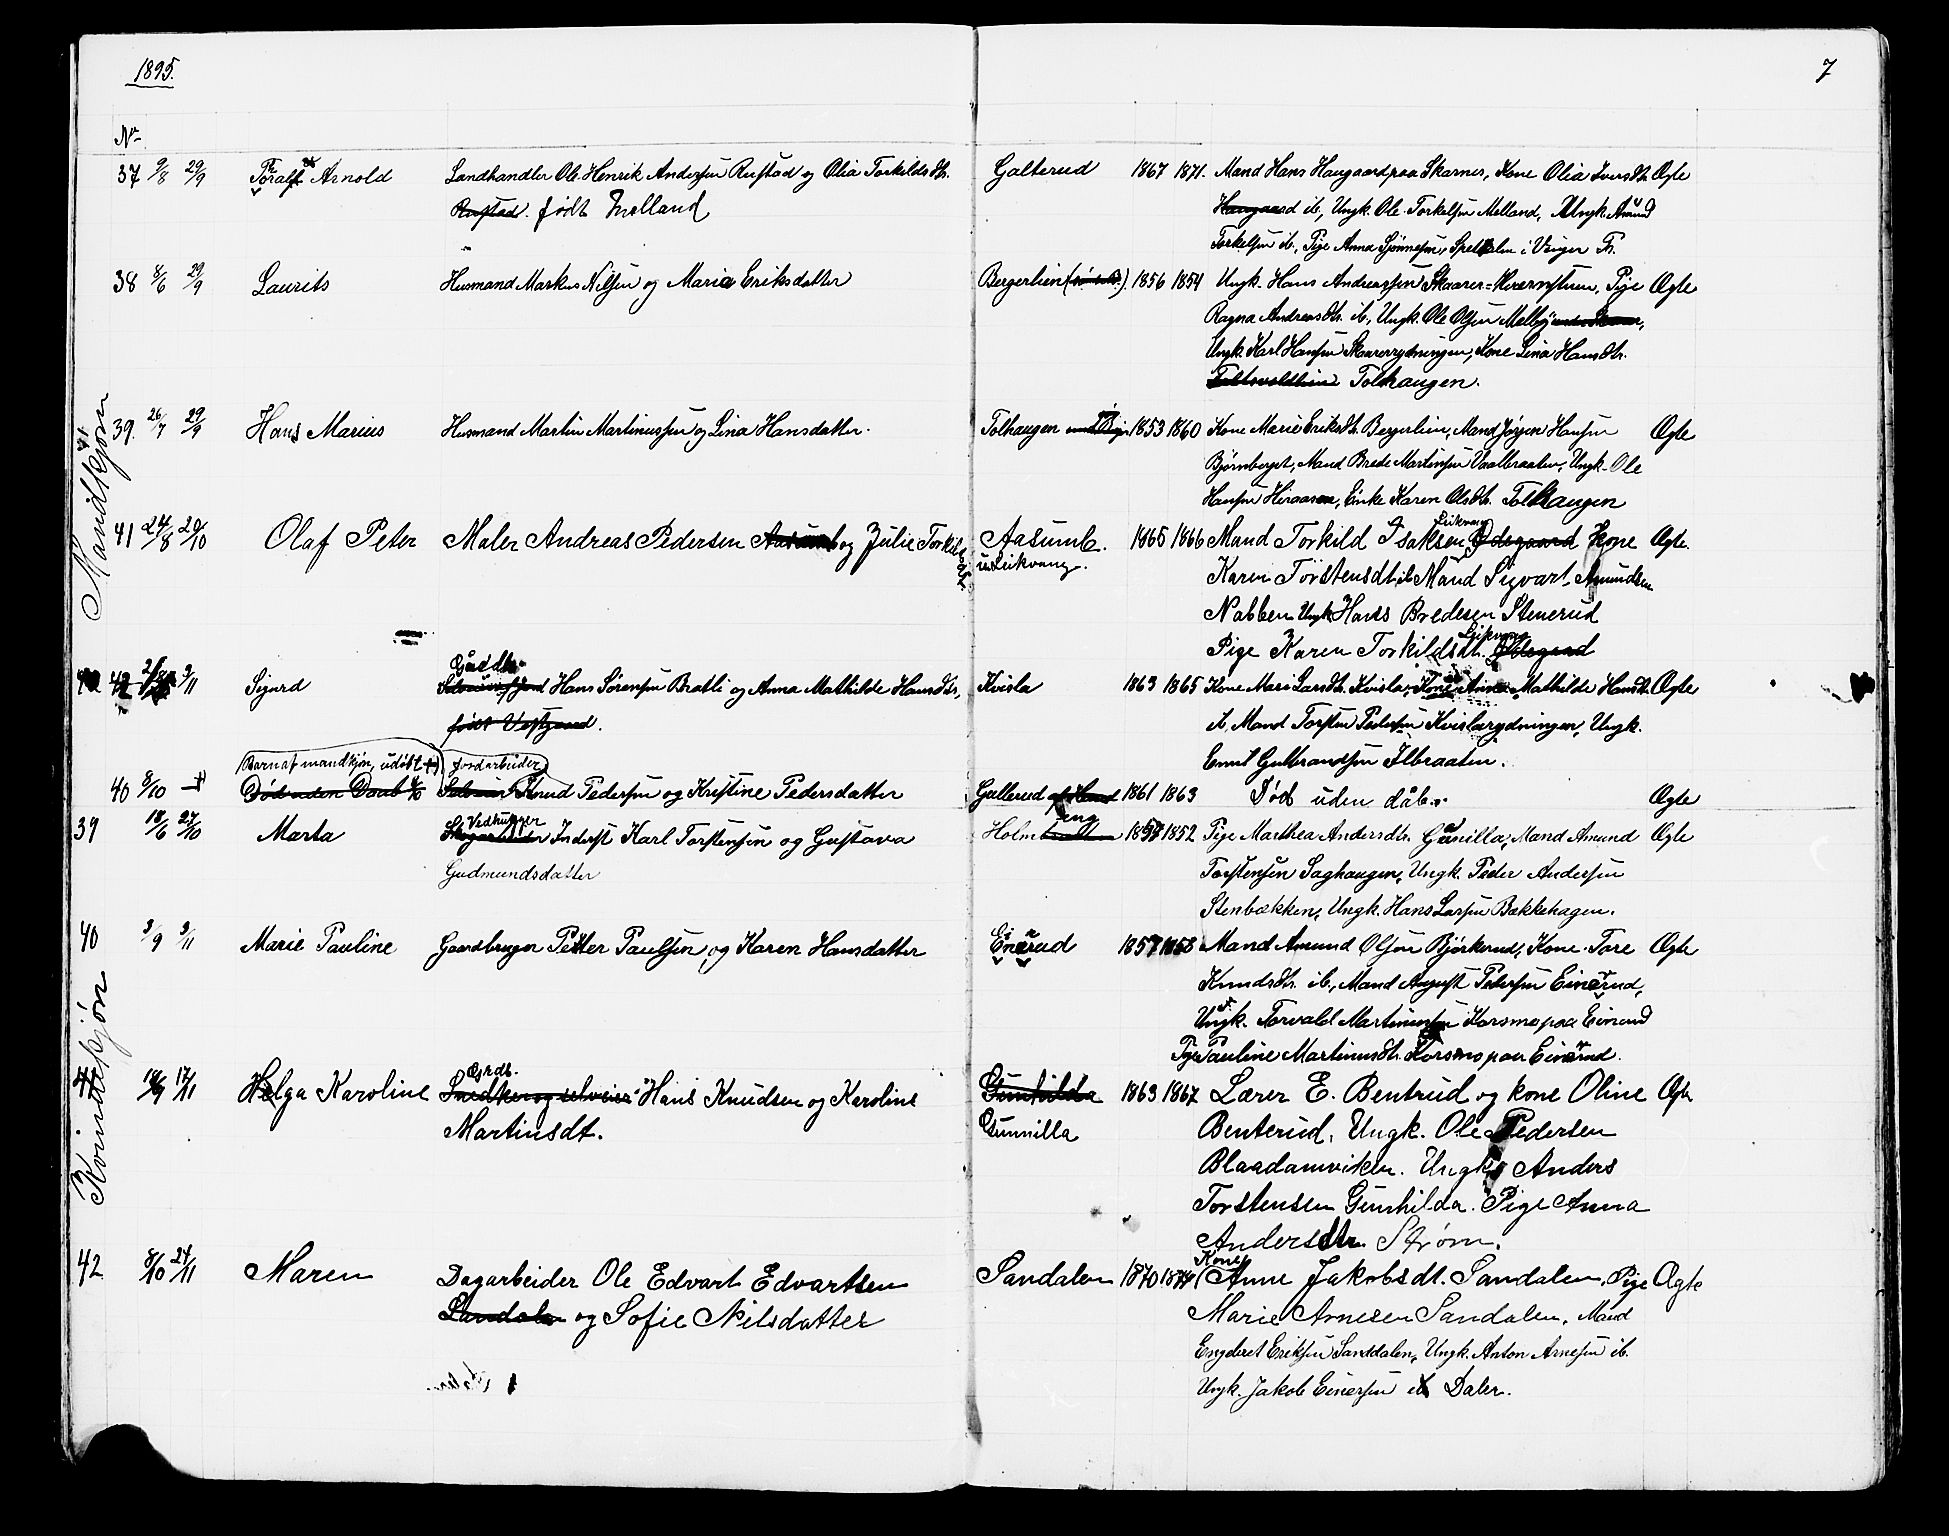 1895.
7
Nr
Mandkjøn
37 9/8 29/9 Thoralf Arnold Landhandler Ole Henrik Andersen Rustad og Olia Torkildsdtr. Galterud 1867 1871. Mand Hans Haugaard paa Skarnes, Kone Olia Iversdtr. Ægte
Rustad. født Melland Haugaard ib., Ungk. Ole Torkelsen Melland, Ungk. Amund
Torkelsen ib., Pige Anna i Vinger
38 8/6 29/9 Laurits Husmand Markus Nilsen og Maria Eriksdatter Bergerlien 1856 1854 Ungk. Hans Andreassen Skaarer=Kværnstuen, Pige Ægte
Ragna Andreasdtr. ib., Ungk. Ole Olsen Melby
Ungk. Karl Hansen Skaarerrydningen, Kone Lina Hansdtr.
Tolhaugen.
39. 26/7 29/9 Hans Marius Husmand Martin Martinussen og Lina Hansdatter. Tolhaugen 1853 1860 Kone Marie Eriksdtr. Bergerlien, Mand Jørgen Hansen Ægte
Bjørnberget, Mand Brede Martinsen Vaalbraaten, Ungk. Ole
Hansen Hiraasen, Enke Karen Olsdtr. Tolhaugen
41 24/8 20/10 Olaf Peter Maler Andreas Pedersen Aasumb og Julie Torkildsdtr Aasumb. 1865 1866 Mand Torkild Isaksen Leikvang Ødegaard Kone Ægte.
Leikvang. Karen Torstensdt. ib Mand Sigvart Amundsen
Nabben Ungk. Hans Bredesen Stenerud
Pige Karen Torkildsdt. Leikvang Ødegaard
42 3/11 Sigurd Gaardbr. Hans Sørensen Bratli og Anna Mathilde Hansdtr, Kvisla 1863 1865 Kone Mari Larsdtr. Kvisla, Kone Anna Mathilde Hansdtr. Ægte
født Vestgaard. ib, Mand Torsten Pedersen Kvislarydningen, Ungk.
Emil Gulbrandsen Ilbraaten.
Barn af mandkjøn, udøbt Jordarbeider
40 8/10 Død uden Daab Knud Pedersen og Kristine Pedersdatter Gullerud 1861 1863 Død uden dåb. Ægte
Kvindekjøn
39 18/6 27/10 Marta Vedhugger Inderst Karl Torstensen og Gustava Holmeng 1853 1852 Pige Marthea Andersdtr. Gunilla, Mand Amund Ægte
Gudmundsdatter Torstensen Saghaugen, Ungk. Peder Andersen
Stenbækken, Ungk. Hans Larsen Bækkehagen.
40 3/9 3/11 Marie Pauline Gaardbruger Petter Paulsen og Karen Hansdatter Einerud 1857 1858 Mand Amund Olsen Bjørkerud, Kone Tore Ægte
Knudsdtr. ib., Mand August Pedersen Einerud,
Ungk. Torvald Martinussen Korsmo paa Einerud
Pige Pauline Martinusdtr. Korsmo paa Einerud.
41 17/11 Helga Karoline Grdb. Snedker og selveier Hans Knudsen og Karoline Gunhilda 1863 1867 Lærer E. Bentrud og kone Oline Ægte
Martinsdt. Gunnilla Benterud, Ungk. Ole Pedersen
Blaadamviken. Ungk. Anders
Torstensen Gunhilda. Pige Anna
Andersdtr. Strøm.
42 8/10 24/11 Maren Dagarbeider Ole Edvart Edvartsen Sandalen 1870 1874 Kone Anne Jakobsdt. Sandalen, Pige Ægte
Sandalen og Sofie Nilsdatter Marie Arnesen Sandalen, Mand
Engebret Eriksen Sanddalen, Ungk. Anton Arnesen ib.
Ungk. Jakob Einersen Daler.